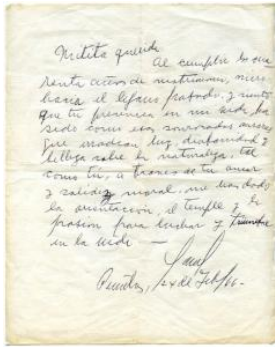 Mitita querida
Al cumplir los cua
renta años de matrimonio, miro
hacia el lejano pasado, y siento
que tu presencia en mi vida, ha
sido como esas sonrosadas auroras
que irradian luz, diafanidad y
belleza sobre la naturaleza, tal
como tú, a traves de tu amor
y solidez moral, me han dado
la orientación, el temple y la
pasion para luchar y triunfar
en la vida —
24 de Feb/66-